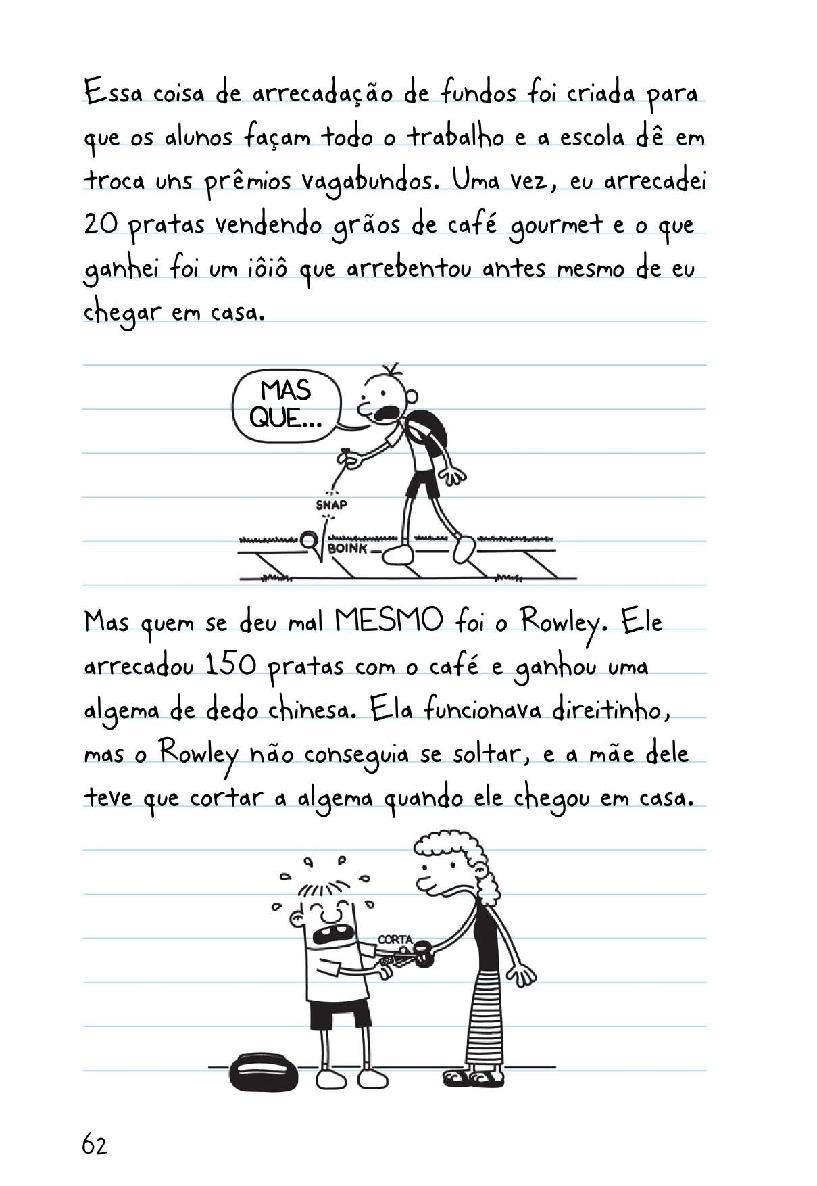 Essa coisa de arrecadação de fundos foi criada para
que os alunos façam todo o trabalho e a escola dê em
troca uns prêmios vagabundos. Uma vez, eu arrecadei
20 pratas vendendo grãos de café gourmet e o que
ganhei foi um iôiô que arrebentou antes mesmo de eu
chegar em casa.
MAS
QUE...
SNAP
BOINK
Mas quem se deu mal MESMO foi o Rowley. Ele
arrecadou 150 pratas com o café e ganhou uma
algema de dedo chinesa. Ela funcionava direitinho,
mas o Rowley não conseguia se soltar, e a mãe dele
teve que cortar a algema quando ele chegou em casa.
CORTA
62